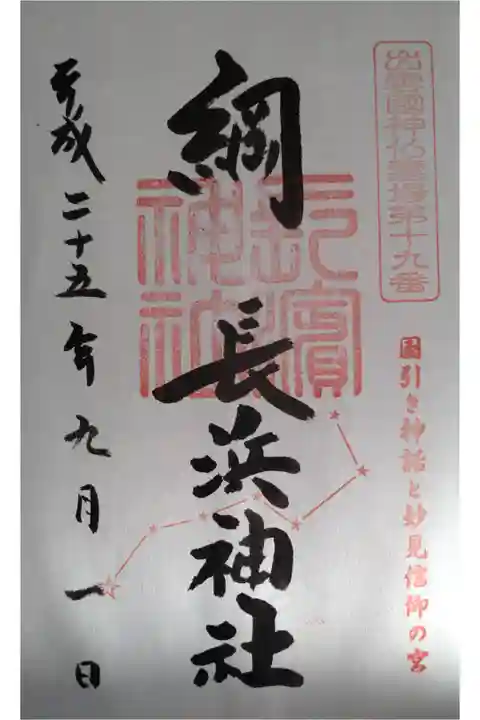 出雲國神仏霊場第十九番
國引き神話と妙見信仰の宮
綱
長浜神社
長濱
神社
平成二十五年九月一日